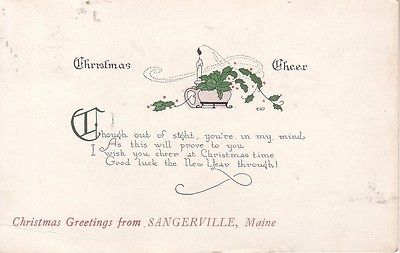 Christmas Cheer
Though out of sight, you're in my mind,
As this will prove to you
I wish you cheer at Christmas time
Good luck the New Year through!
Christmas Greetings from SANGERVILLE, Maine